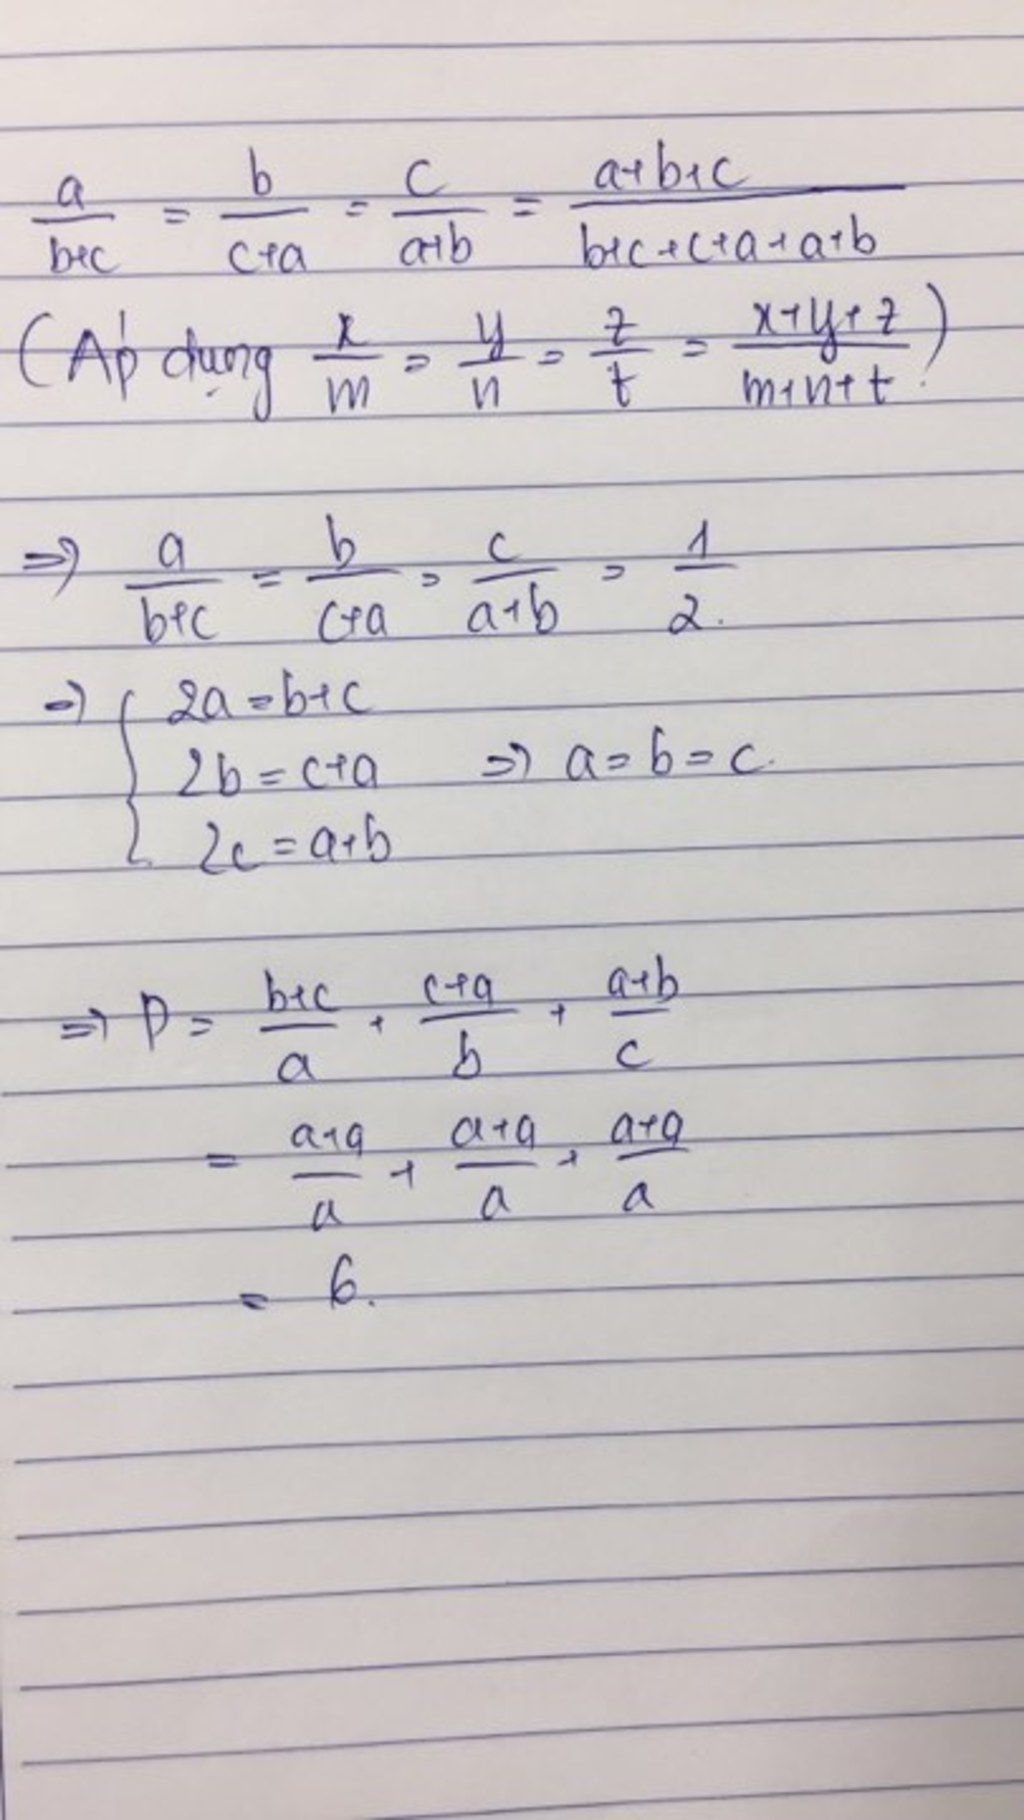 a/(b+c) = b/(c+a) = c/(a+b) = (a+b+c)/(b+c+c+a+a+b)
(Áp dụng x/m = y/n = z/t = (x+y+z)/(m+n+t).)
⇒ a/(b+c) = b/(c+a) = c/(a+b) = 1/2.
⇒ { 2a = b+c
2b = c+a ⇒ a = b = c.
2c = a+b
⇒ P = (b+c)/a + (c+a)/b + (a+b)/c
= (a+a)/a + (a+a)/a + (a+a)/a
= 6.